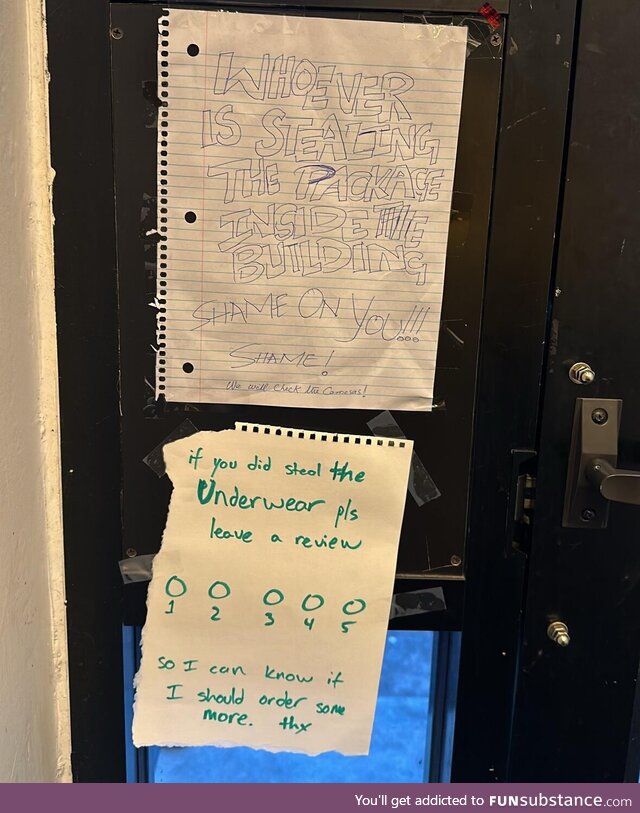 WHOEVER
IS STEALING
THE PACKAGE
INSIDE THE
BUILDING
SHAME ON YOU!!!
SHAME!
We will check the Cameras!
if you did steal the
Underwear pls
leave a review
1 2 3 4 5
so I can know if
I should order some
more. thx
You'll get addicted to FUNsubstance.com